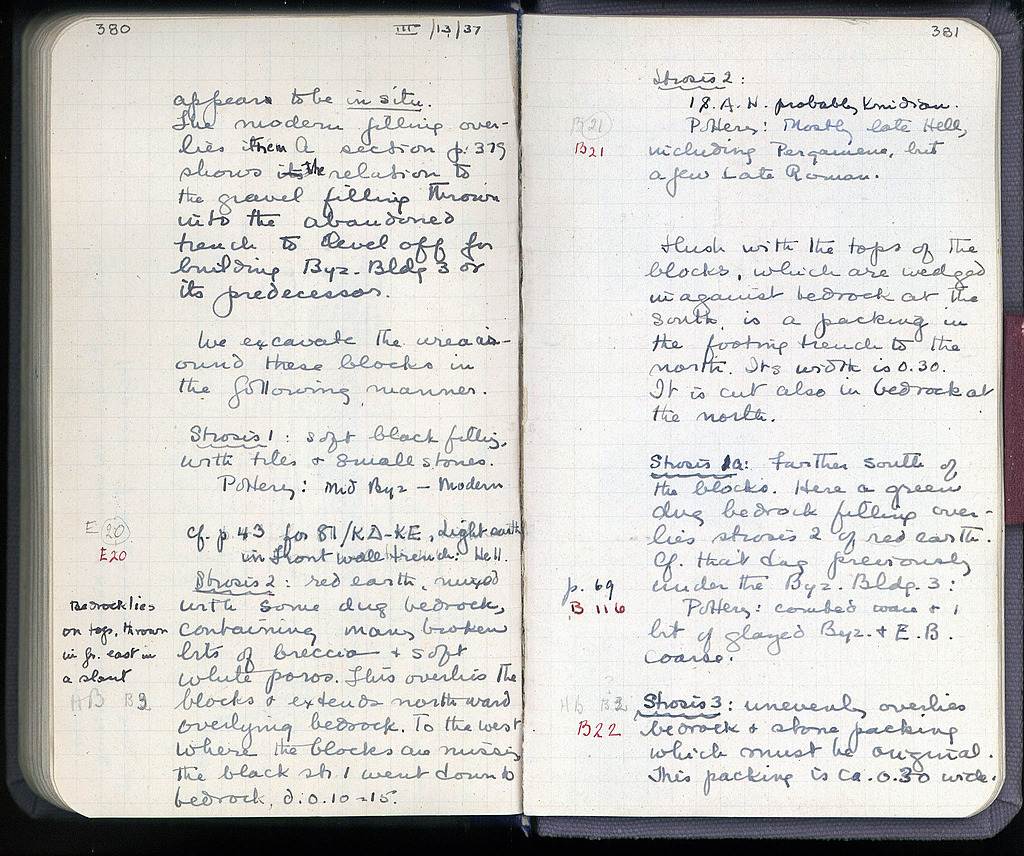 380
III /13/37
appears to be in situ.
The modern filling over-
lies them A section p. 379
shows its the relation to
the gravel filling thrown
into the abandoned
trench to level off for
building Byz. Bldg 3 or
its predecessor.
We excavate the area a-
round these blocks in
the following manner.
Strosis 1 : soft black filling,
with tiles + small stones.
Pottery: Mid Byz – Modern
E (20)
E20
cf. p. 43 for 81/KΔ-KE, Light earth
in front wall trench: Hell.
Strosis 2 : red earth, mixed
with some dug bedrock,
containing many broken
bits of breccia + soft
white poros. This overlies the
blocks & extends northward
overlying bedrock. To the west
where the blocks are missing
the black str. 1 went down to
bedrock, d. 0.10-15.
Bedrock lies
on top, thrown
in fr. east in
a slant
HB B2
381
Strosis 2 :
18. A. H. probably Knidian.
Pottery: Mostly late Hell,
including Pergamene, but
a few Late Roman.
B(21)
B21
Flush with the tops of the
blocks, which are wedged
in against bedrock at the
south, is a packing in
the footing trench to the
north. Its width is 0.30.
It is cut also in bedrock at
the north.
Strosis 1a: Farther south of
the blocks. Here a green
dug bedrock filling over-
lies strosis 2 of red earth.
Cf. that dug previously
under the Byz. Bldg. 3 :
Pottery: combed ware + 1
bit of glazed Byz. + E.B.
coarse.
p. 69
B 116
HB B2
B22
Strosis 3 : unevenly overlies
bedrock + stone packing
which must be original.
This packing is ca. 0.30 wide.